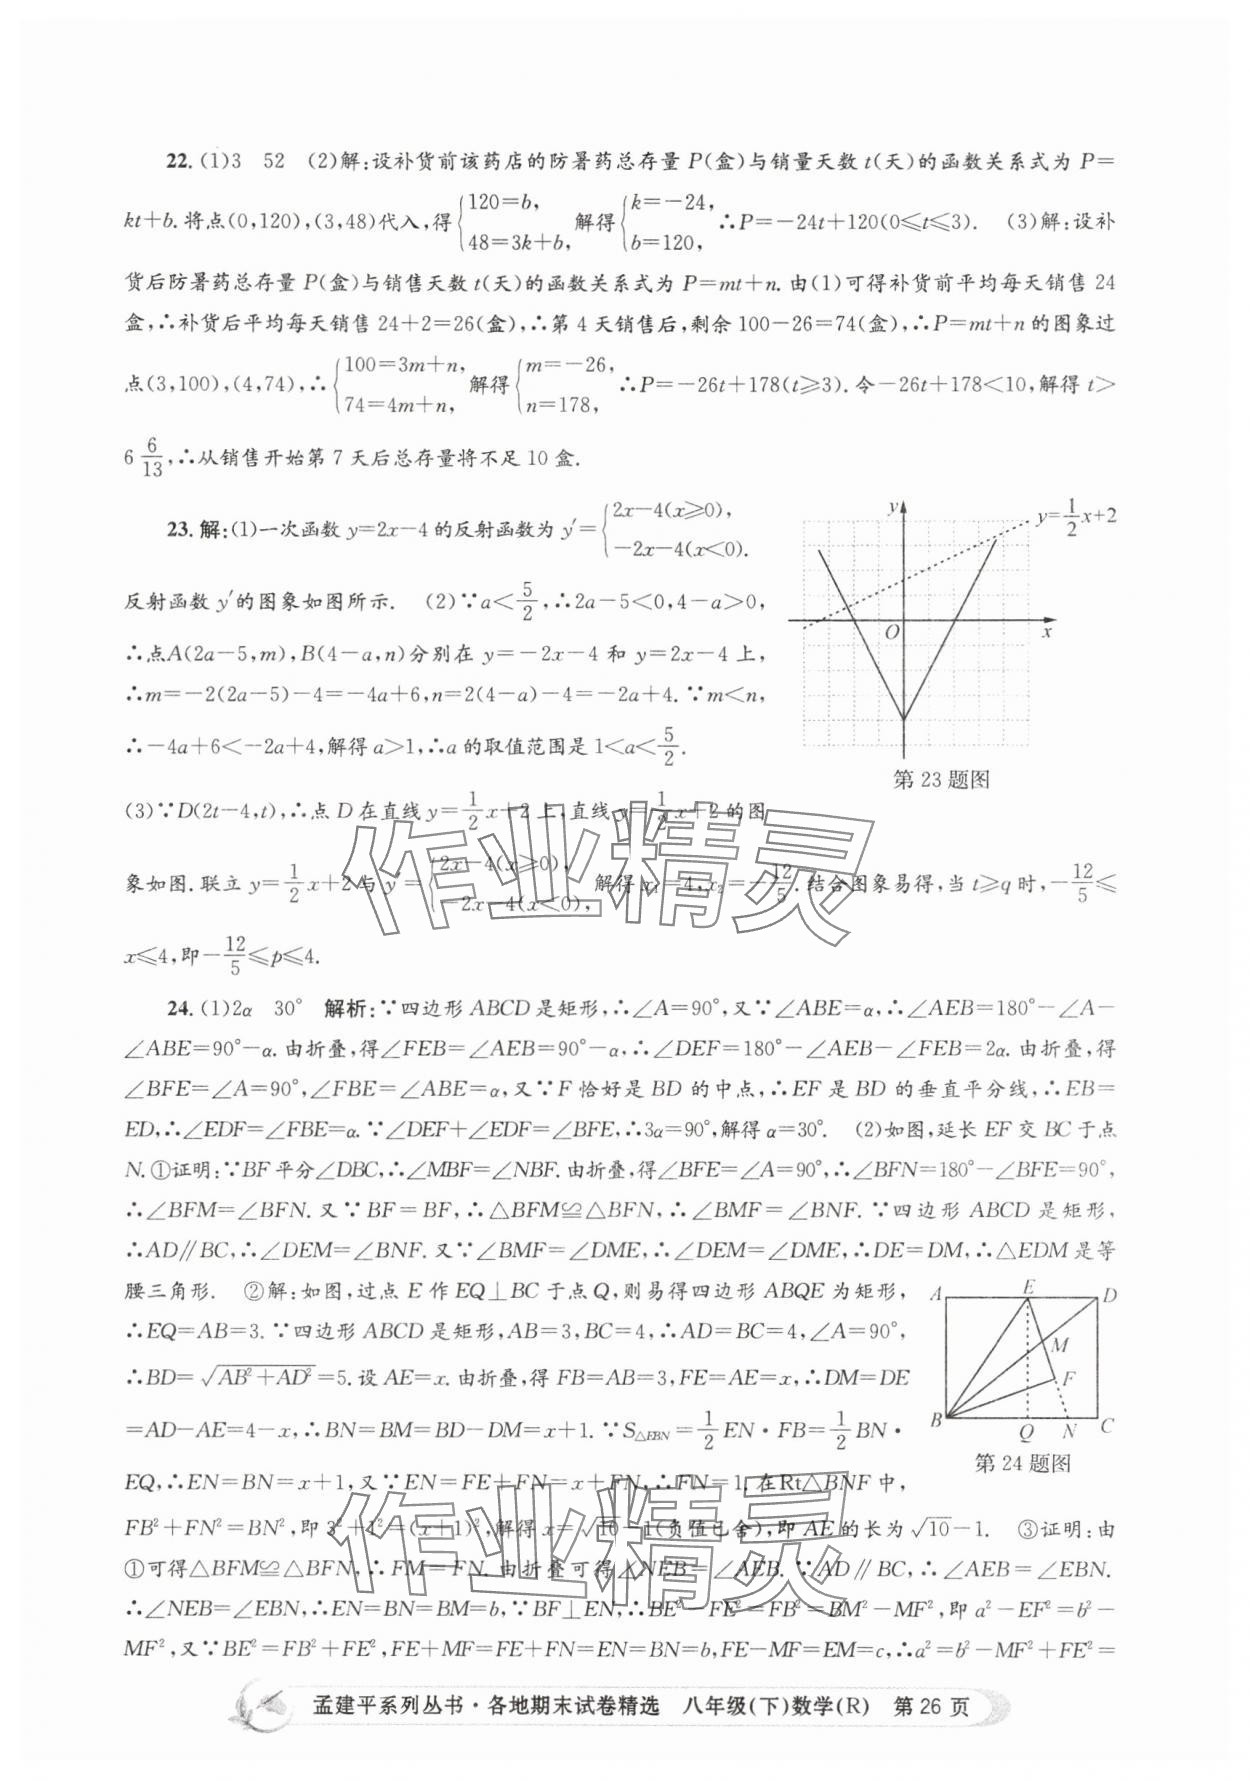 22.(1)3　52　(2)解:设补货前该药店的防暑药总存量 P(盒)与销量天数 t(天)的函数关系式为 P=
kt+b.将点(0,120),(3,48)代入,得{120=b, 48=3k+b, 解得{k=-24, b=120, ∴P=-24t+120(0≤t≤3).　(3)解:设补
货后防暑药总存量 P(盒)与销售天数 t(天)的函数关系式为 P=mt+n.由(1)可得补货前平均每天销售 24
盒,∴补货后平均每天销售 24+2=26(盒),∴第 4 天销售后,剩余 100-26=74(盒),∴P=mt+n 的图象过
点(3,100),(4,74),∴{100=3m+n, 74=4m+n, 解得{m=-26, n=178, ∴P=-26t+178(t≥3).令-26t+178<10,解得 t>
6 6/13,∴从销售开始第 7 天后总存量将不足 10 盒.
23.解:(1)一次函数 y=2x-4 的反射函数为 y′={2x-4(x≥0), -2x-4(x<0).
反射函数 y′的图象如图所示.　(2)∵a<5/2,∴2a-5<0,4-a>0,
∴点A(2a-5,m),B(4-a,n)分别在 y=-2x-4 和 y=2x-4 上,
∴m=-2(2a-5)-4=-4a+6,n=2(4-a)-4=-2a+4.∵m<n,
∴-4a+6<-2a+4,解得 a>1,∴a 的取值范围是 1<a<5/2.
y
y=1/2x+2
O
x
第 23 题图
(3)∵D(2t-4,t),∴点 D 在直线 y=1/2x+2 上,直线 y=1/2x+2 的图
象如图.联立 y=1/2x+2 与 y′={2x-4(x≥0), -2x-4(x<0), 解得 x₁=4,x₂=-12/5.结合图象易得,当 t≥q 时,-12/5≤
x≤4,即-12/5≤p≤4.
24.(1)2α　30°　解析:∵四边形 ABCD 是矩形,∴∠A=90°,又∵∠ABE=α,∴∠AEB=180°-∠A-
∠ABE=90°-α.由折叠,得∠FEB=∠AEB=90°-α,∴∠DEF=180°-∠AEB-∠FEB=2α.由折叠,得
∠BFE=∠A=90°,∠FBE=∠ABE=α,又∵F 恰好是 BD 的中点,∴EF 是 BD 的垂直平分线,∴EB=
ED,∴∠EDF=∠FBE=α.∵∠DEF+∠EDF=∠BFE,∴3α=90°,解得 α=30°.　(2)如图,延长 EF 交 BC 于点
N.①证明:∵BF 平分∠DBC,∴∠MBF=∠NBF.由折叠,得∠BFE=∠A=90°,∴∠BFN=180°-∠BFE=90°,
∴∠BFM=∠BFN.又∵BF=BF,∴△BFM≌△BFN,∴∠BMF=∠BNF.∵四边形 ABCD 是矩形,
∴AD∥BC,∴∠DEM=∠BNF.又∵∠BMF=∠DME,∴∠DEM=∠DME,∴DE=DM,∴△EDM 是等
腰三角形.　②解:如图,过点 E 作 EQ⊥BC 于点 Q,则易得四边形 ABQE 为矩形,
∴EQ=AB=3.∵四边形 ABCD 是矩形,AB=3,BC=4,∴AD=BC=4,∠A=90°,
∴BD=√(AB²+AD²)=5.设 AE=x.由折叠,得 FB=AB=3,FE=AE=x,∴DM=DE
=AD-AE=4-x,∴BN=BM=BD-DM=x+1.∵S△EBN=1/2EN·FB=1/2BN·
EQ,∴EN=BN=x+1,又∵EN=FE+FN=x+FN,∴FN=1.在Rt△BNF 中,
A E D
M
F
B Q N C
第 24 题图
FB²+FN²=BN²,即 3²+1²=(x+1)²,解得 x=√10-1(负值已舍),即 AE 的长为√10-1.　③证明:由
①可得△BFM≌△BFN,∴FM=FN.由折叠可得∠NEB=∠AEB.∵AD∥BC,∴∠AEB=∠EBN.
∴∠NEB=∠EBN,∴EN=BN=BM=b,∵BF⊥EN,∴BE²-FE²=FB²=BM²-MF²,即 a²-EF²=b²-
MF²,又∵BE²=FB²+FE²,FE+MF=FE+FN=EN=BN=b,FE-MF=EM=c,∴a²=b²-MF²+FE²=
作业精灵
作业精灵
孟建平系列丛书·各地期末试卷精选　八年级(下)数学(R)　第 26 页